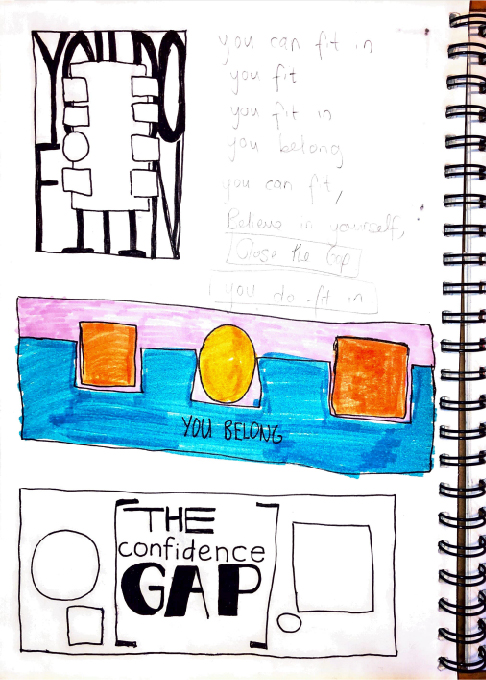 YOU DO
you can fit in
you fit
you fit in
you belong
you can fit,
Believe in yourself,
Close the Gap
you do fit in
YOU BELONG
THE
confidence
GAP